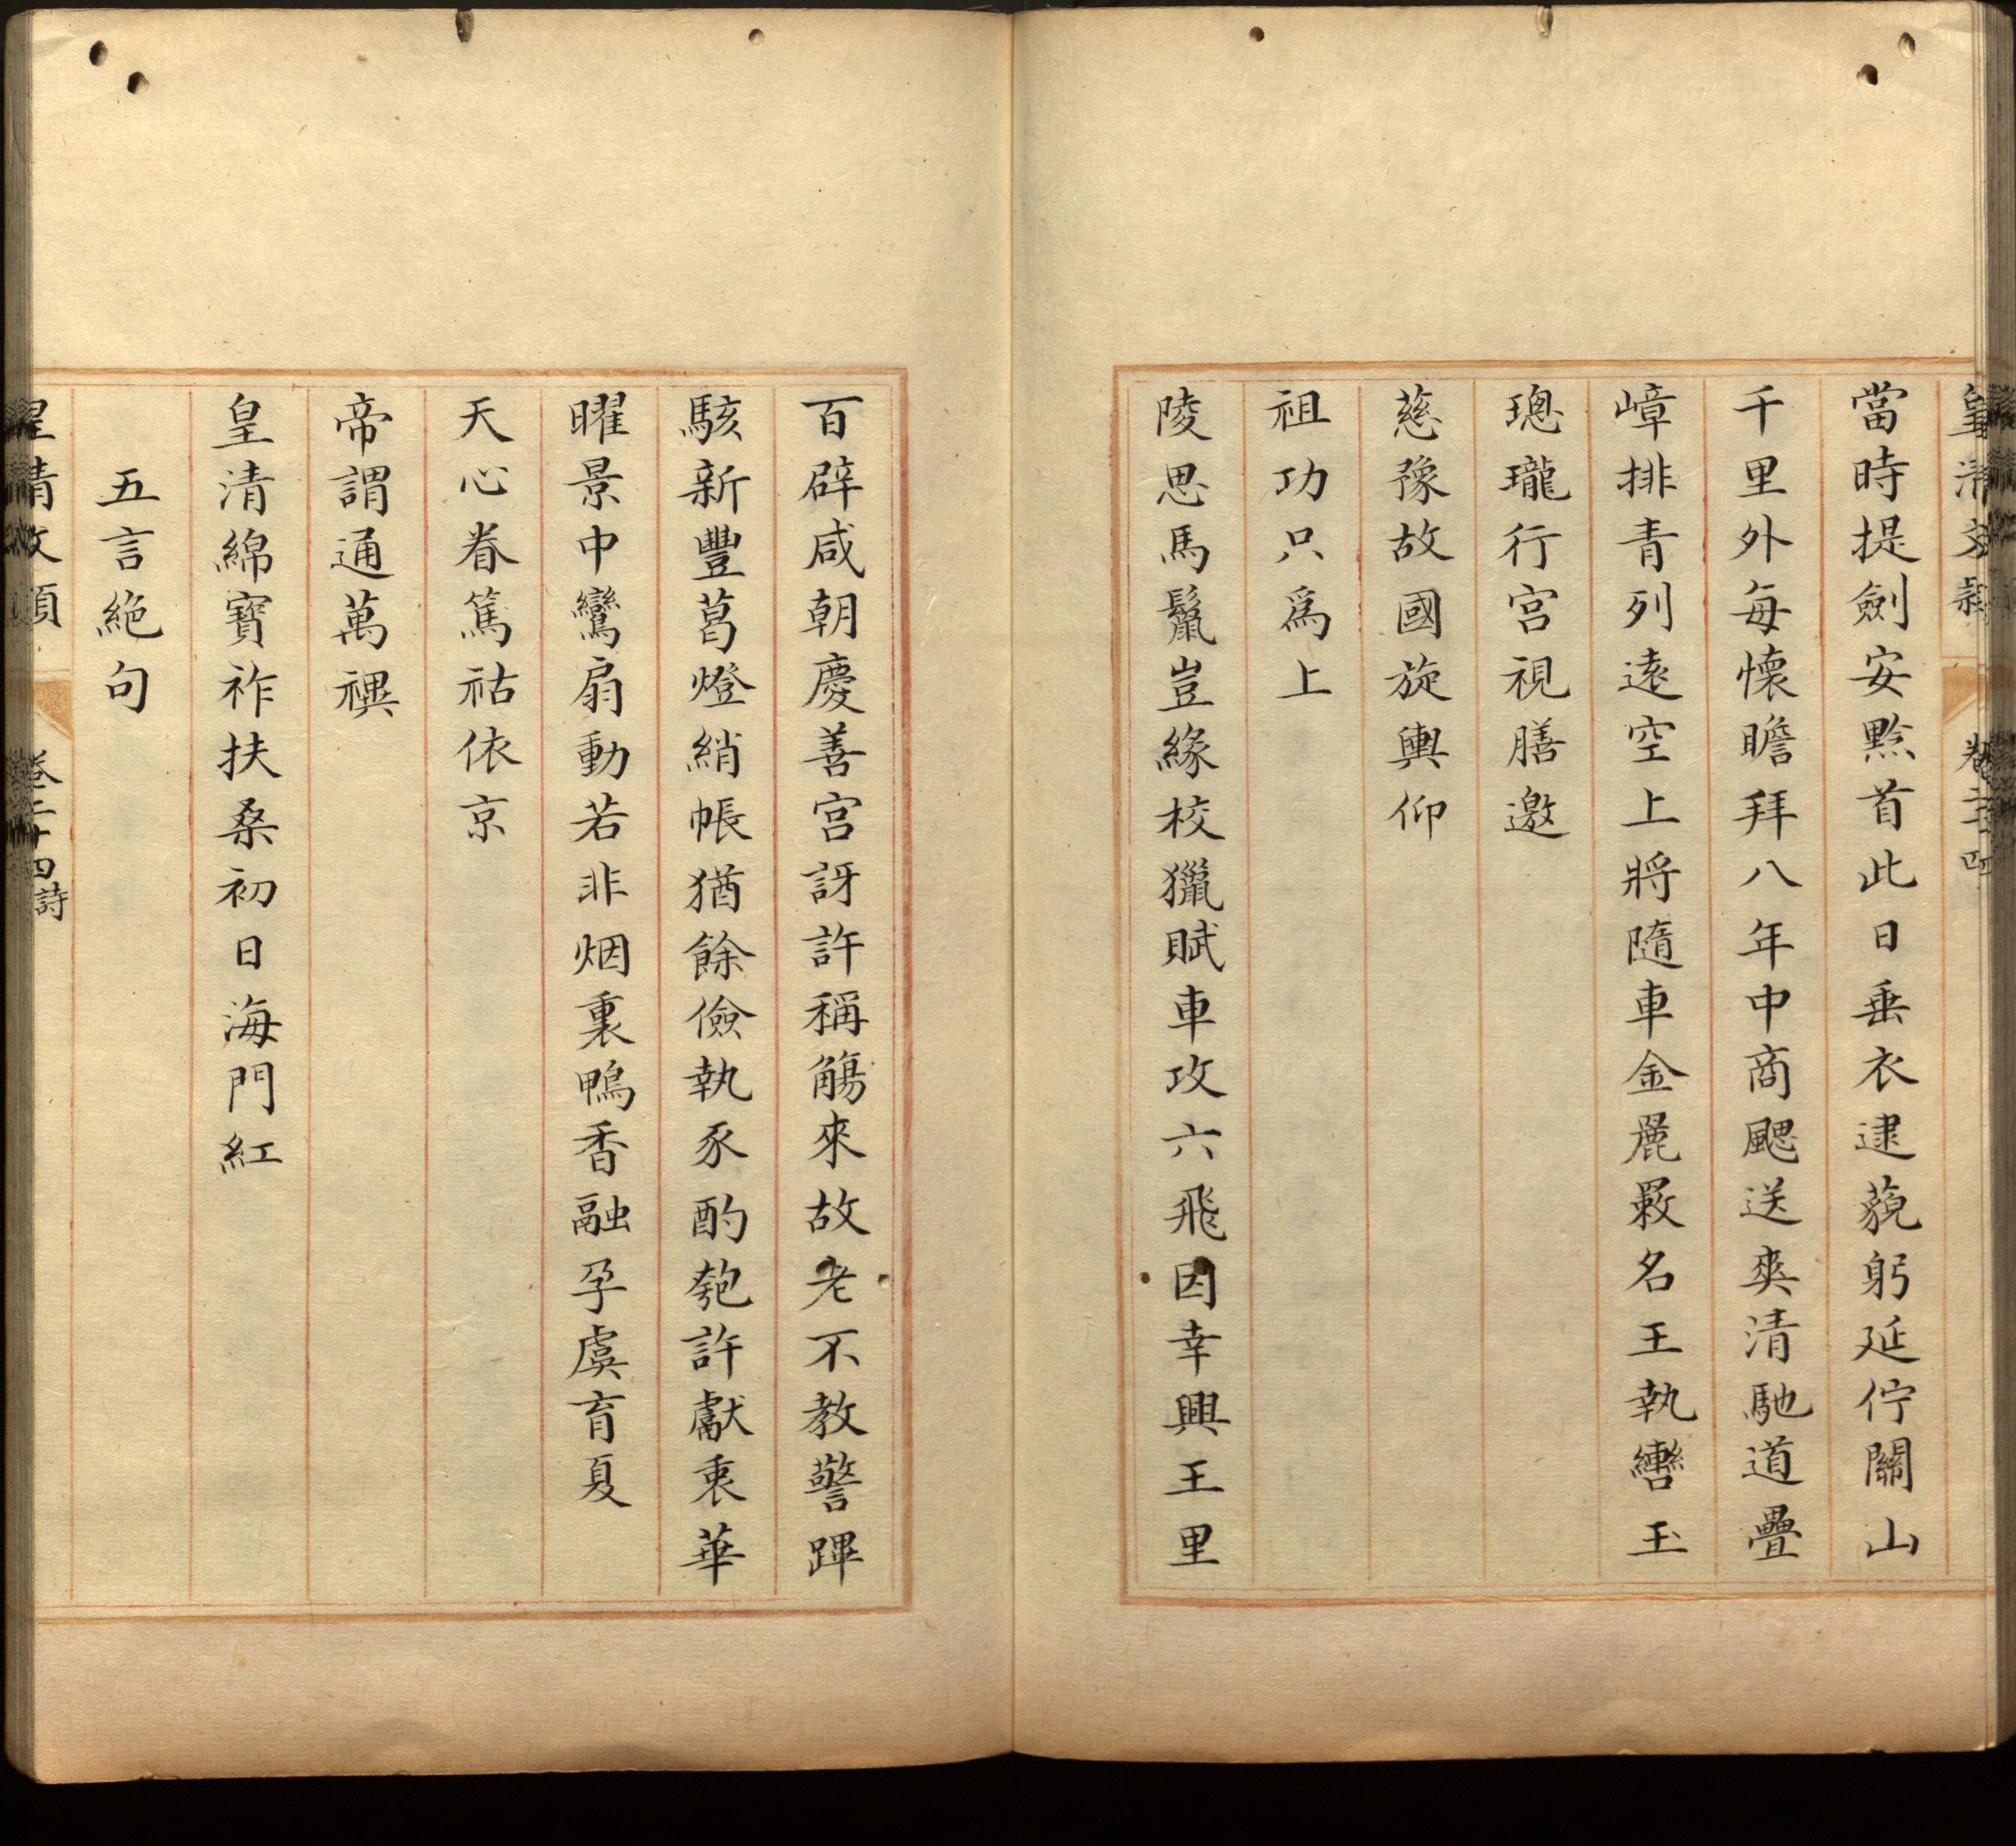 當時提劍安黔首此日垂衣逮藐躬延佇關山
千里外每懷瞻拜八年中商颸送爽清馳道疊
嶂排青列遠空上將隨車金麗㲄名王執轡玉
璁瓏行宮視膳邀
慈豫故國旋輿仰
祖功只爲上
陵思馬鬛豈緣校獵賦車攻六飛因幸興王里
百辟咸朝慶善宮訝許稱觴來故老不教警蹕
駭新豐葛燈綃帳猶餘儉執豕酌匏許獻衷華
曜景中鸞扇動若非烟裏鴨香融孕虞育夏
天心眷篤祜依京
帝謂通萬禩
皇清綿寶祚扶桑初日海門紅
五言絕句
皇清文穎
卷二十四詩